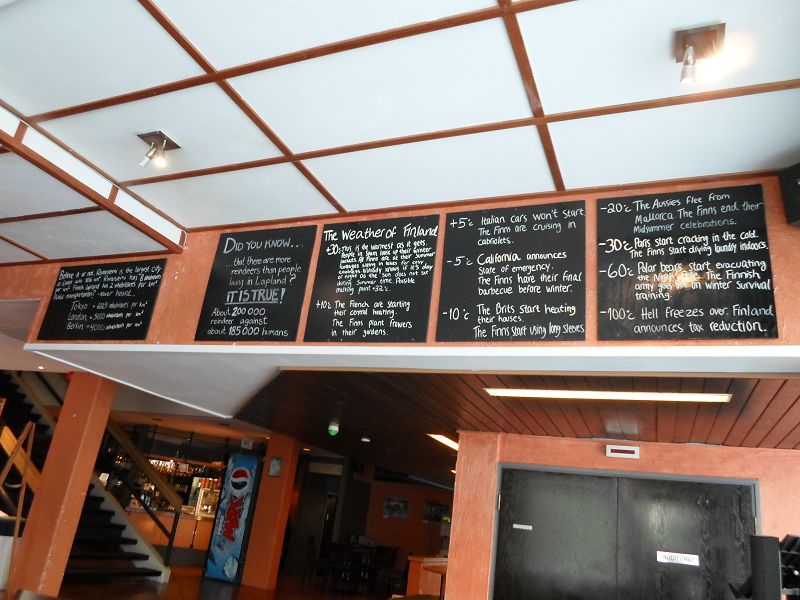 Believe it or not, Rovaniemi is the largest city
Public transportation? - never heard...
Tokyo =
London = 5000 inhabitants per km²
Berlin = 4000 inhabitants per km²
DID YOU KNOW...
...that there are more
reindeers than people
living in Lapland?
IT IS TRUE!
About 200 000
reindeer against
about 185 000 humans
The Weather of Finland
+30°c This is the warmest as it gets.
People in Spain look up their winter
jackets. All Finns are at their Summer
during Summer time. Possible
melting point +32°c.
+10°c The French are starting
their central heating.
The Finns plant flowers
in their gardens.
+5°c Italian cars won't start
The Finns are cruising in
cabriolets.
-5°c California announces
State of emergency.
The Finns have their final
barbecue before winter.
-10°c The Brits start heating
their houses.
The Finns start using long sleeves
-20°c The Aussies flee from
Mallorca. The Finns end their
Midsummer celebrations.
-30°c Paris start cracting in the cold.
The Finns start drying laundry indoors.
-60°c Polar bears start evacuating
the North Pole. The Finnish
army goes on winter Survival
training.
-100°c Hell freezes over. Finland
announces tax reduction.
MAX
AUDITORIO